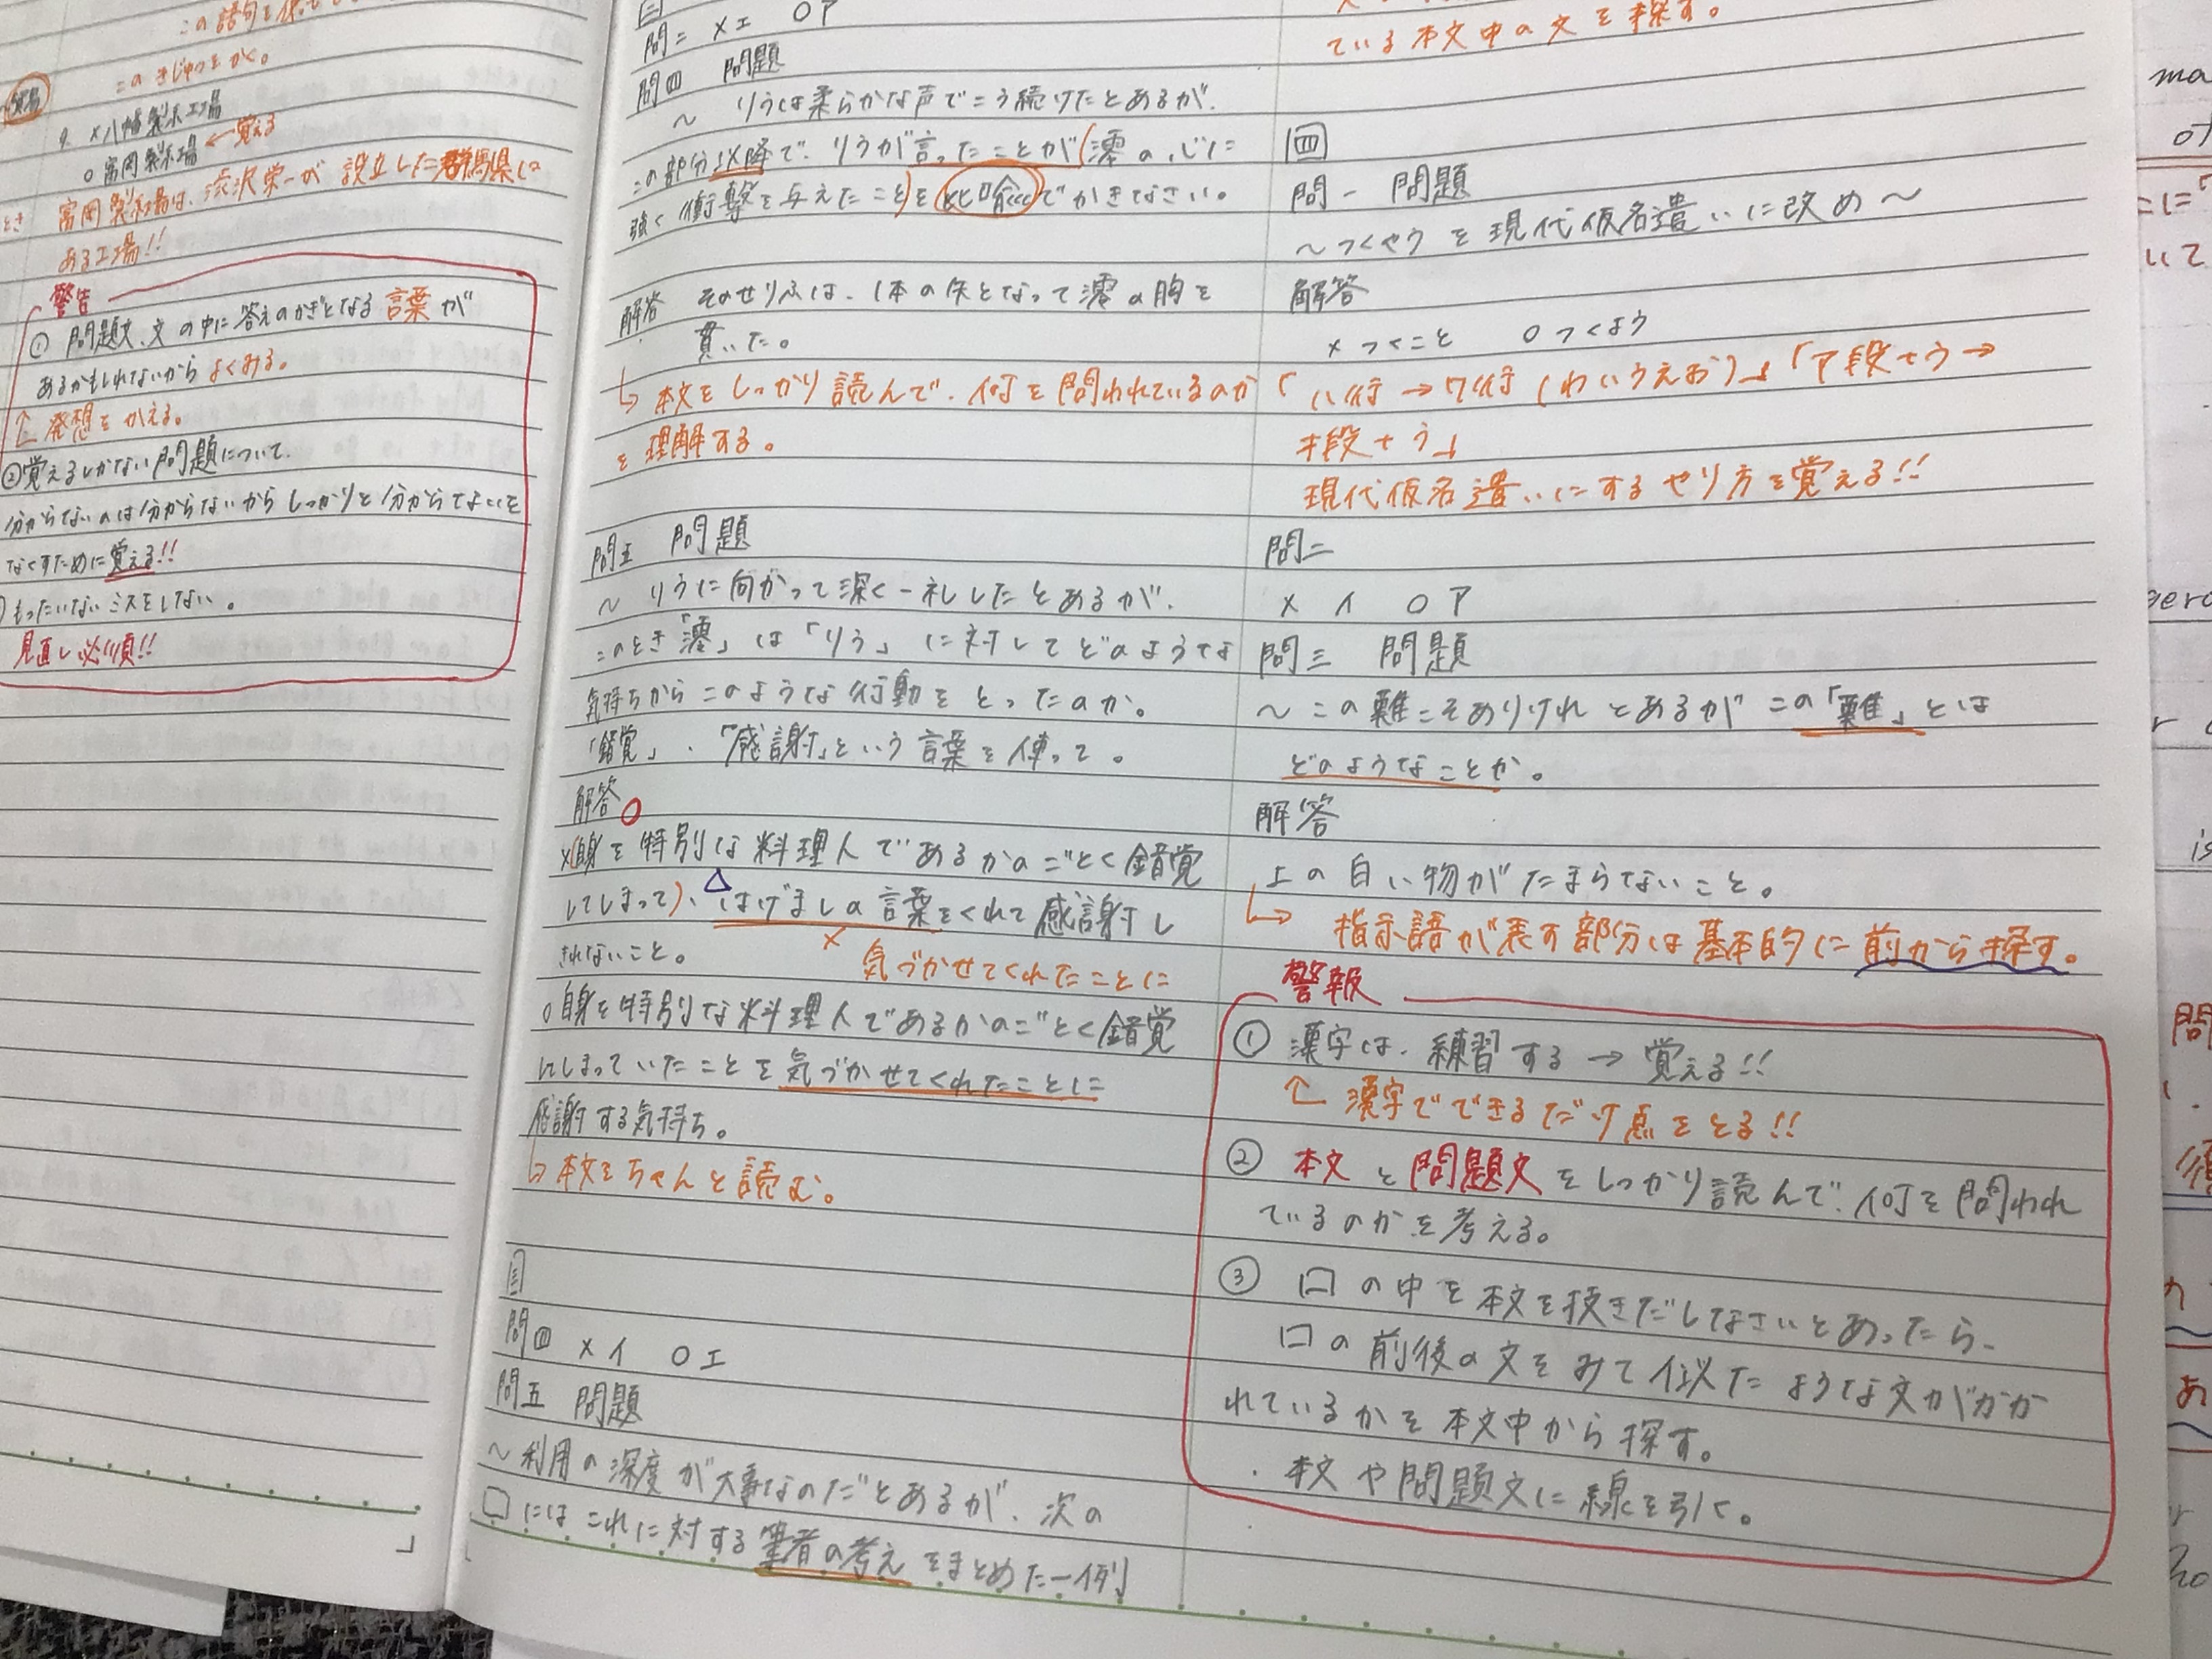 この語句を
このきじゅつをかく。
9. ×八幡製糸工場
○富岡製糸場 ←覚える
富岡製糸場は、渋沢栄一が設立した群馬県に
ある工場!!
警告
① 問題文、文の中に答えのかぎとなる言葉が
あるかもしれないからよくみる。
↑発想をかえる。
②覚えるしかない問題について.
分からないのは分からないからしっかりと分からてよいを
なくすために覚える!!
もったいないミスをしない。
見直し必須!!
三
問二 ×エ ○ア
問四 問題
〜 りうは柔らかな声でこう続けたとあるが、
この部分以降で、りうが言ったことが(澪の心に
強く衝撃を与えたこと)を比喩でかきなさい。
解答 そのせりふは、1本の矢となって澪の胸を
貫いた。
↳本文をしっかり読んで、何を問われているのか
を理解する。
問五 問題
〜 りうに向かって深く一礼したとあるが、
このとき「澪」は「りう」に対してどのような
気持ちからこのような行動をとったのか。
「錯覚」、「感謝」という言葉を使って。
解答
×(自身を特別な料理人であるかのごとく錯覚
してしまって)、はげましの言葉をくれて感謝し
きれないこと。
× 気づかせてくれたことに
○自身を特別な料理人であるかのごとく錯覚
してしまっていたことを気づかせてくれたことに
感謝する気持ち。
↳本文をちゃんと読む。
問四 ×イ ○エ
問五 問題
〜利用の深度が大事なのだとあるが、次の
□にはこれに対する筆者の考えをまとめた一例
ている本文中の文を探す。
四
問一 問題
〜つくやうを現代仮名遣いに改め〜
解答
×つくこと ○つくよう
「ハ行→ワ行(わいうえお)」「ア段+う→
オ段+う」
現代仮名遣いにするやり方を覚える!!
問二
× イ ○ ア
問三 問題
〜この難こそありけれとあるがこの「難」とは
どのようなことか。
解答
上の白い物がたまらないこと。
↳指示語が表す部分は基本的に前から探す。
警報
① 漢字は、練習する→覚える!!
↑漢字でできるだけ点をとる!!
② 本文と問題文をしっかり読んで、何を問われ
ているのかを考える。
③ □の中を本文を抜きだしなさいとあったら、
□の前後の文をみて似たような文がかか
れているかを本文中から探す。
・本文や問題文に線を引く。